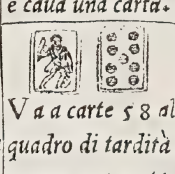 e caua una carta.
V a a carte 5 8 al
quadro di tardità